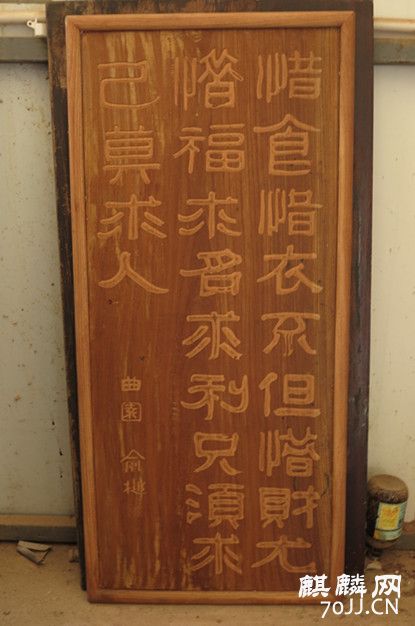 惜食惜衣不但惜財尤
惜福求名求利只須求
己莫求人
曲園 俞樾
麒麟网
70JJ.CN